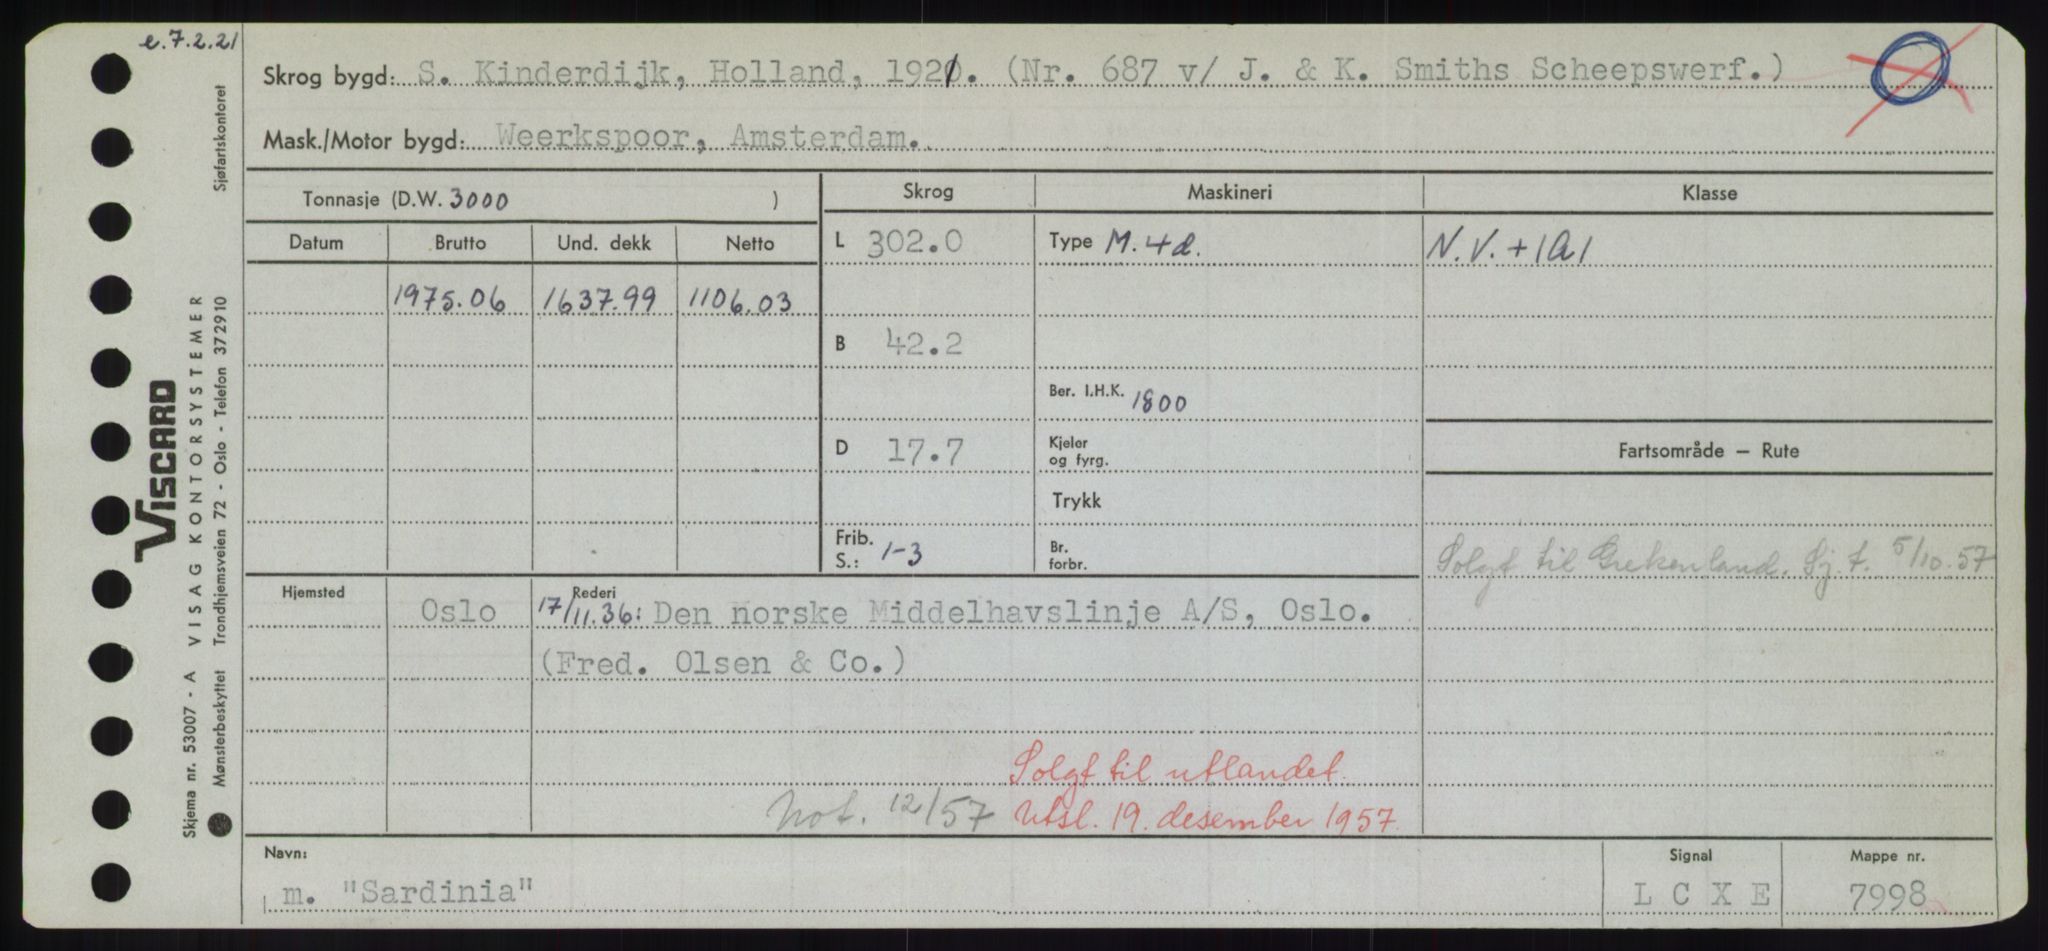 e.7.2.21
Skrog bygd: S. Kinderdijk, Holland, 1921. (Nr. 687 v/ J. & K. Smiths Scheepswerf.)
Mask./Motor bygd: Weerkspoor, Amsterdam.
Tonnasje (D.W. 3000 )
Skrog Maskineri Klasse
Datum Brutto Und. dekk Netto
L 302.0 Type M. 4d. N.V. + 1A1
1975.06 1637.99 1106.03
B 42.2
Ber. I.H.K. 1800
D 17.7 Kjeler og fyrg.
Fartsområde – Rute
Trykk
Frib. S.: 1-3 Br. forbr.
Solgt til Grekenland. Sj.t. 5/10.57
Hjemsted Rederi
Oslo 17/11.36: Den norske Middelhavslinje A/S, Oslo.
(Fred. Olsen & Co.)
Solgt til utlandet.
Not. 12/57 Utsl. 19. desember 1957.
Navn: Signal Mappe nr.
m. "Sardinia" L C X E 7998
Viscard
VISAG KONTORSYSTEMER
Skjema nr. 53007 - A
Mønsterbeskyttet Trondhjemsveien 72 - Oslo - Telefon 372910 Sjøfartskontoret